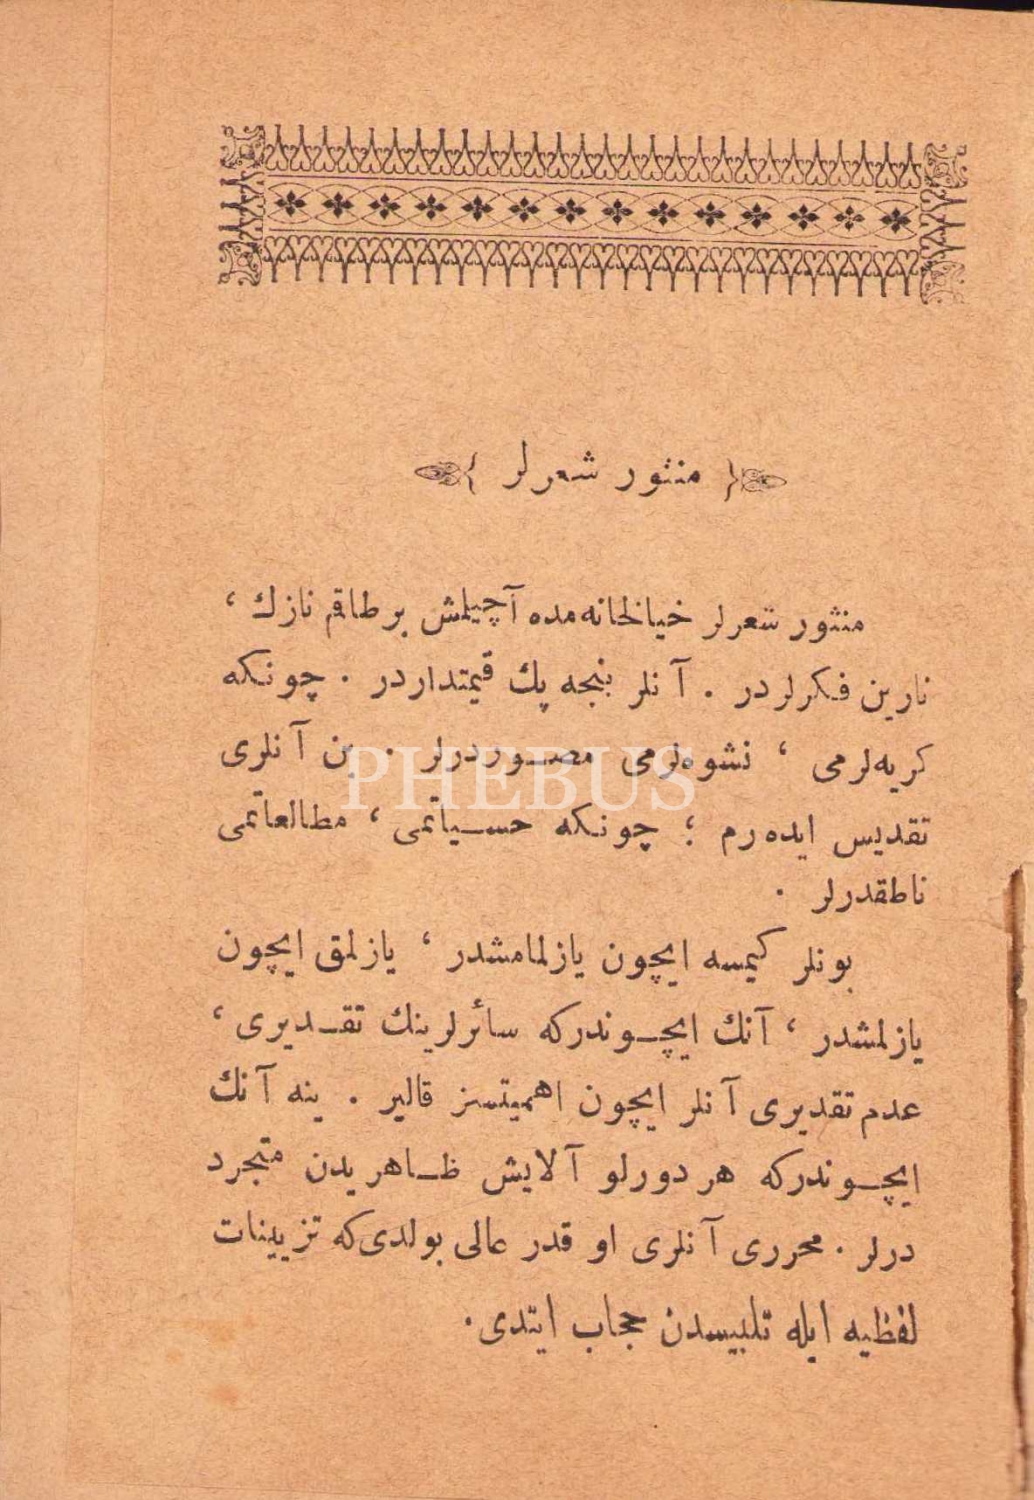 منثور شعرلر
منثور شعرلر خیالخانه‌مده آچیلمش برطاقم نازك ،
نارین فکرلردر . آنلر بنجه پك قیمتداردر . چونکه
کریه‌لرمی ، نشوه‌لرمی مصوردرلر . بن آنلری
تقدیس ایده‌رم ؛ چونکه حسیاتمی ، مطالعاتمی
ناطقدرلر .
بونلر کیمسه ایچون یازلمامشدر ، یازلمق ایچون
یازلمشدر ، آنك ایچوندرکه سائرلرینك تقدیری ،
عدم تقدیری آنلر ایچون اهمیتسز قالیر . ینه آنك
ایچوندرکه هر دورلو آلایش ظاهریدن متجرد
درلر . محرری آنلری او قدر عالی بولدی‌که تزیینات
لفظیه ایله تلبیسدن حجاب ایتدی .
PHEBUS